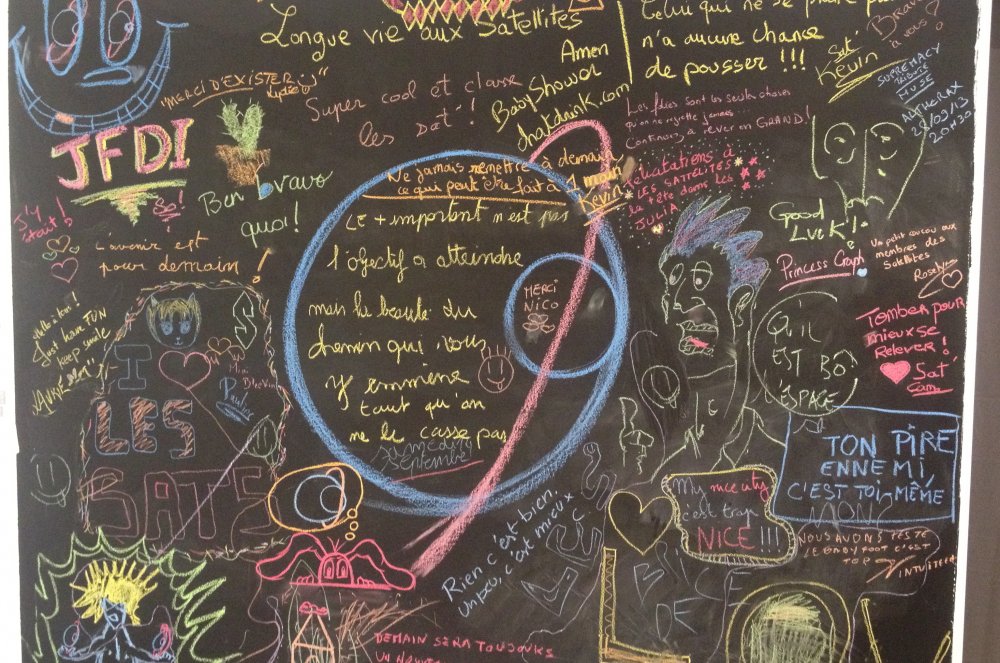 Longue vie aux Satellites
Celui qui ne se
n'a aucune chance
de pousser !!!
Sat'
Kevin
Bravo
à vous !
SUPREMACY
MUSE
28/09/13
20H30
Amen
BabyShower
"MERCI D'EXISTER"
Super cool et classe
les sat' !
JFDI
Ben
bravo
quoi !
J'y
étais !
L'avenir est
pour demain !
Hello à tous !
Just have FUN
keep smile
Les folies sont les seules choses
qu'on ne regrette jamais
Continuez à rêver en GRAND !
Ne jamais remettre à demain
ce qui peut être fait à 1 main
Kevin
LES SATTELITES
la tête dans les
JULIA
LE + important n'est pas
l'objectif a atteindre
mais la beauté du
chemin qui vous
y emmène
tant qu'on
ne le casse pas
samedi
septembre
MERCI
NICO
Good
Luck !
Princess Graph
Un petit coucou aux
membres des
Satellites
Tomber pour
mieux se
Relever !
Sat'
Cam
QU'IL
EST BÔ
L'ESPACE
I
LES
SATS
Pauline
TON PIRE
ENNEMI,
C'EST TOI MÊME
My nice city
c'est trop
NICE !!!
NOUS AVONS TESTÉ
LE BABY FOOT C'EST
TOP
Rien c'est bien,
un peu, c'est mieux
DEMAIN SERA TOUJOURS
UN NOUVEAU